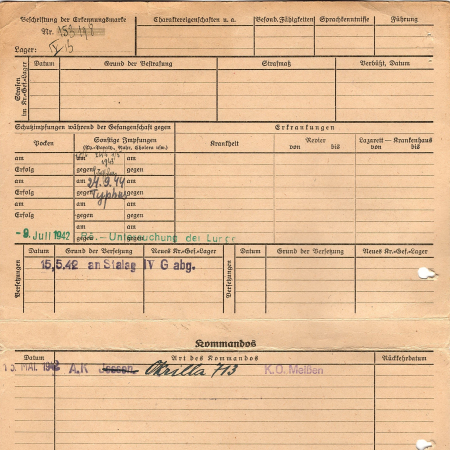 Beschriftung der Erkennungsmarke
Nr.
Lager: IV B
Charaktereigenschaften u.a.
Besond. Fähigkeiten
Sprachkenntnisse
Führung
Strafen im Kr.-Gef.-Lager
Datum
Grund der Bestrafung
Strafmaß
Verbüßt, Datum
Schutzimpfungen während der Gefangenschaft gegen
Pocken
Sonstige Impfungen
(Ty.-Paraty., Ruhr, Cholera usw.)
Erkrankungen
Krankheit
Revier
von bis
Lazarett — Krankenhaus
von bis
am
am
am
Erfolg
gegen
gegen
am
am 24.9.44
am
Erfolg
gegen Typhus
gegen
am
am
am
Erfolg
gegen
gegen
am
am
am
Erfolg
gegen
gegen
-9. Juli 1942 Rö.-Untersuchung der Lunge
Versetzungen
Datum
Grund der Versetzung
Neues Kr.-Gef.-Lager
Versetzungen
Datum
Grund der Versetzung
Neues Kr.-Gef.-Lager
15.5.42 an Stalag IV G abg.
Kommandos
Datum
Art des Kommandos
Rückkehrdatum
15. MAI 1942 A.K Jessen Okrilla 713 K.O. Meißen